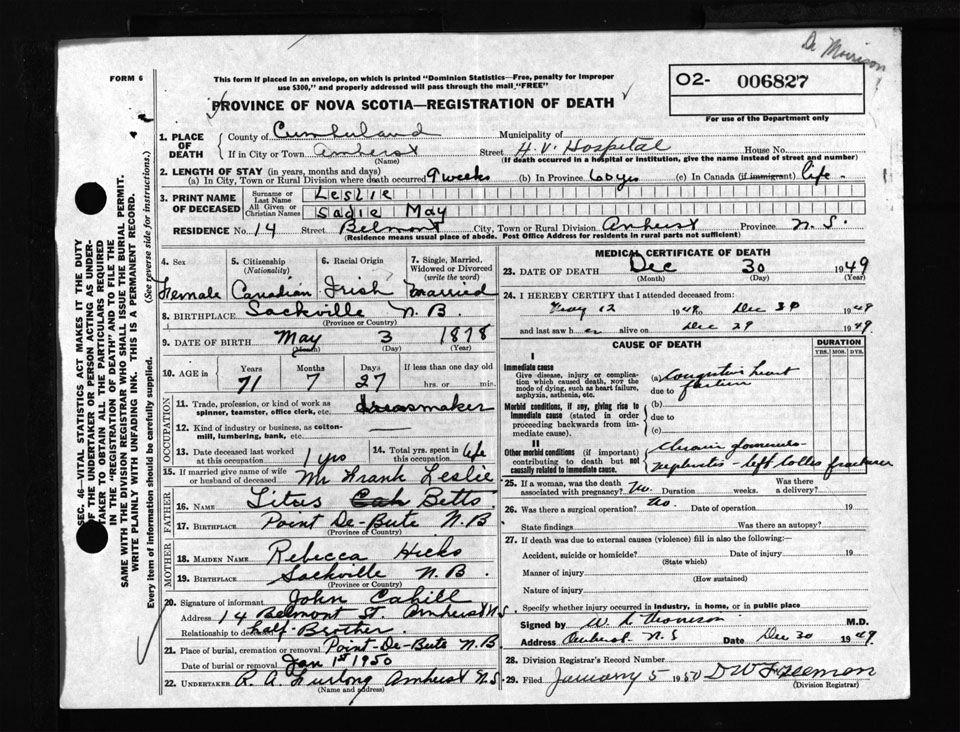 Dr Morrison
FORM 6
This form if placed in an envelope, on which is printed "Dominion Statistics—Free, penalty for improper
use $300," and properly addressed will pass through the mail "FREE"
O2- 006827
For use of the Department only
PROVINCE OF NOVA SCOTIA—REGISTRATION OF DEATH
1. PLACE OF DEATH
County of Cumberland Municipality of
If in City or Town Amherst Street H.V. Hospital House No.
(Name) (If death occurred in a hospital or institution, give the name instead of street and number)
2. LENGTH OF STAY (in years, months and days)
(a) In City, Town or Rural Division where death occurred 9 weeks (b) In Province 60 yrs (c) In Canada (if immigrant) life
3. PRINT NAME OF DECEASED
Surname or Last Name LESLIE
All Given or Christian Names Sadie May
RESIDENCE No. 14 Street Belmont City, Town or Rural Division Amherst Province N.S.
(Residence means usual place of abode. Post Office Address for residents in rural parts not sufficient)
4. Sex 5. Citizenship (Nationality) 6. Racial Origin 7. Single, Married, Widowed or Divorced (write the word)
Female Canadian Irish Married
8. BIRTHPLACE Sackville N.B.
(Province or Country)
9. DATE OF BIRTH May 3 1878
(Month) (Day) (Year)
10. AGE in Years Months Days If less than one day old
71 7 27 hrs. or min.
OCCUPATION
11. Trade, profession or kind of work as spinner, teamster, office clerk, etc. dressmaker
12. Kind of industry or business, as cotton-mill, lumbering, bank, etc. —
13. Date deceased last worked at this occupation 1 yrs 14. Total yrs. spent in this occupation life
15. If married give name of wife or husband of deceased Mr Frank Leslie
FATHER
16. NAME Titus Betts
17. BIRTHPLACE Point De-Bute N.B.
(Province or Country)
MOTHER
18. MAIDEN NAME Rebecca Hicks
19. BIRTHPLACE Sackville N.B.
(Province or Country)
20. Signature of informant John Cahill
Address 14 Belmont St. Amherst N.S.
Relationship to deceased Half-Brother
21. Place of burial, cremation or removal Point-De-Bute N.B
Date of burial or removal Jan 1st 1950
22. UNDERTAKER R. A. Furlong Amherst N.S.
(Name and address)
MEDICAL CERTIFICATE OF DEATH
23. DATE OF DEATH Dec 30 1949
(Month) (Day) (Year)
24. I HEREBY CERTIFY that I attended deceased from:
12 1949 to Dec 30 1949
and last saw her alive on Dec 29 1949.
CAUSE OF DEATH DURATION
YRS. MOS. DYS.
I
Immediate cause
Give disease, injury or complication which caused death, NOT the mode of dying, such as heart failure, asphyxia, asthenia, etc.
(a) Congestive heart
due to failure
Morbid conditions, if any, giving rise to immediate cause (stated in order proceeding backwards from immediate cause).
(b)
due to
(c)
II
Other morbid conditions (if important) contributing to death but not causally related to immediate cause.
Chronic glomerulo-
nephritis - left Colles fracture
25. If a woman, was the death associated with pregnancy? No. Duration weeks. Was there a delivery?
26. Was there a surgical operation? No. Date of operation 19
State findings Was there an autopsy?
27. If death was due to external causes (violence) fill in also the following:—
Accident, suicide or homicide? Date of injury 19
(State which)
Manner of injury
(How sustained)
Nature of injury
Specify whether injury occurred in industry, in home, or in public place
Signed by M.D.
Address Amherst N.S Date Dec 30 1949.
28. Division Registrar's Record Number
29. Filed January 5 1950 D W Freeman
(Division Registrar)
SEC. 46—VITAL STATISTICS ACT MAKES IT THE DUTY
OF THE UNDERTAKER OR PERSON ACTING AS UNDER-
TAKER TO OBTAIN ALL THE PARTICULARS REQUIRED
IN THE "REGISTRATION OF DEATH" AND TO FILE THE
SAME WITH THE DIVISION REGISTRAR WHO SHALL ISSUE THE BURIAL PERMIT.
WRITE PLAINLY WITH UNFADING INK. THIS IS A PERMANENT RECORD.
Every item of information should be carefully supplied. (See reverse side for instructions.)